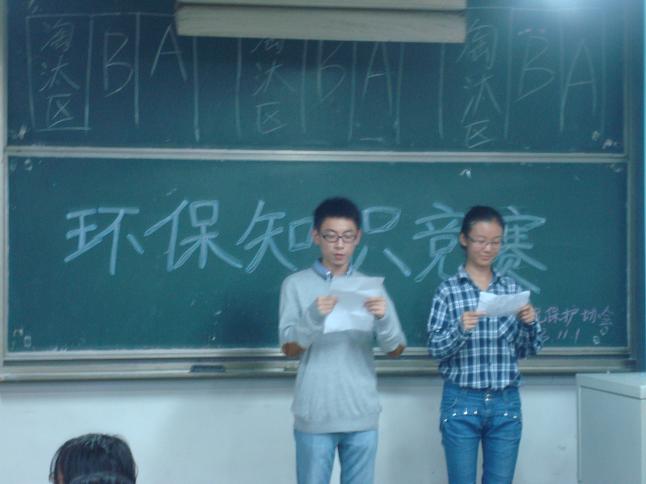 淘汰区 B A 淘汰区 B A 淘汰区 B A
环保知识竞赛
保护协会
11.1